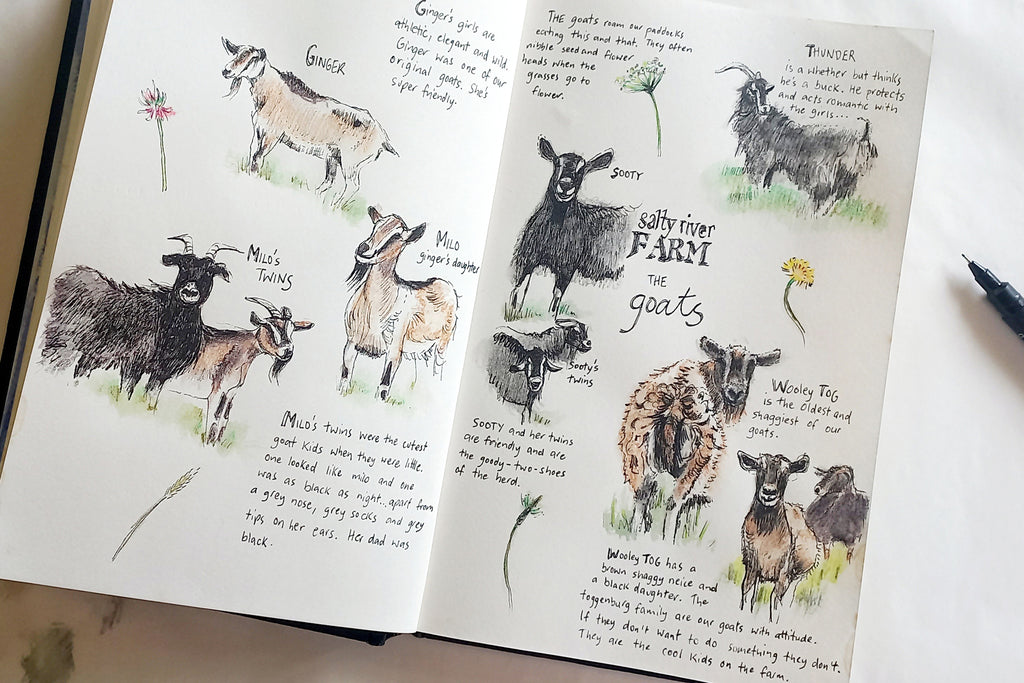 Ginger's girls are
athletic, elegant and wild.
Ginger was one of our
original goats. She's
super friendly.
GINGER
MILO'S
TWINS
MILO
ginger's daughter
MILO'S TWINS WERE the cutest
goat kids when they were little.
one looked like milo and one
was as black as night...apart from
a grey nose, grey socks and grey
tips on her ears. Her dad was
black.
THE goats roam our paddocks
eating this and that. They often
nibble seed and flower
heads when the
grasses go to
flower.
THUNDER
is a whether but thinks
he's a buck. He protects
and acts romantic with
the girls...
SOOTY
salty river
FARM
THE
goats
Sooty's
twins
SOOTY and her twins
are friendly and are
the goody-two-shoes
of the herd.
Wooley TOG
is the oldest and
shaggiest of our
goats.
Wooley TOG has a
brown shaggy neice and
a black daughter. The
toggenburg family are our goats with attitude.
If they don't want to do something they don't.
They are the cool kids on the farm.